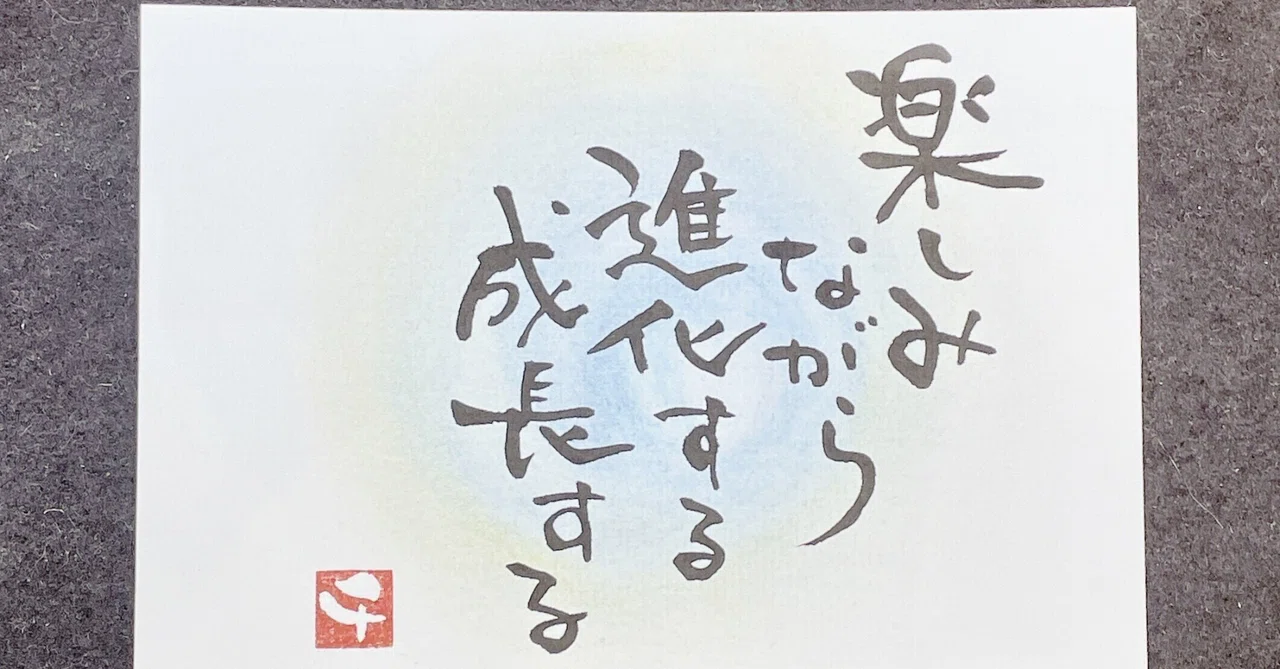 楽しみ
ながら
進化する
成長する